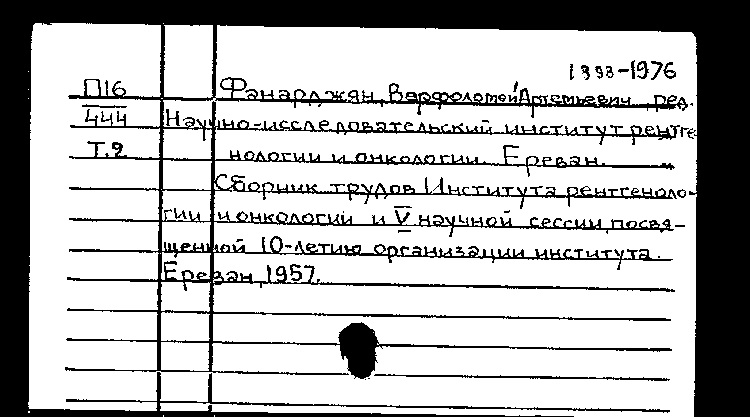 1898-1976
П16 Фанарджян, Варфоломей Артемьевич, ред.
444 Научно-исследовательский институт рентге-
Т.2 нологии и онкологии. Ереван.
Сборник трудов Института рентгеноло-
гии и онкологии и V научной сессии, посвя-
щенной 10-летию организации института.
Ереван, 1957.